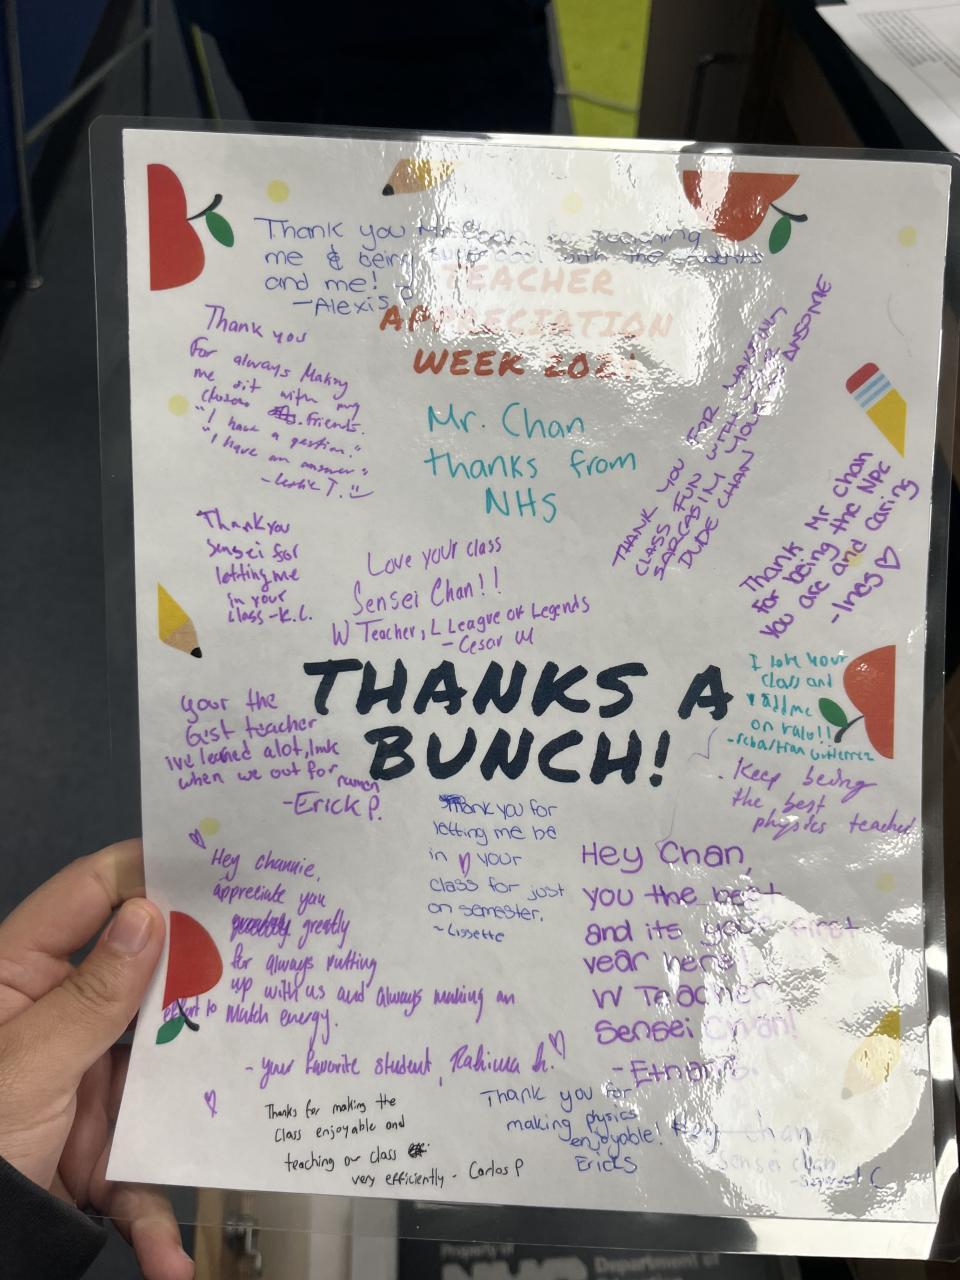 Thank you Mr Chan for teaching
me & being super cool with the students
and me!
-Alexis
TEACHER
APPRECIATION
WEEK 202
Thank you
for always Making
me sit with my
closes friends.
"I have a qestion."
"I have an answer"
-Leslie T.
Mr. Chan
thanks from
NHS
THANK YOU FOR MAKING
CLASS FUN WITH YOUR
SARCASIM YOUR AN AWSOME
DUDE CHAN
Thank Mr Chan
for being the NPC
you are and Caring
-Ines ♡
Thankyou
Sensei for
letting me
in your
class -K.L.
Love your class
Sensei Chan!!
W Teacher, L League of Legends
- Cesar M
THANKS A
BUNCH!
I love your
class and
add me
on valo!!
-Sebastian Gutierrez
your the
best teacher
ive learned alot, lmk
when we out for ramen
-Erick P.
Keep being
the best
physics teacher
Thank you for
letting me be
in ♡ your
class for just
on semester.
~Lissette
Hey channie,
appreciate you
greatly
for always putting
up with us and always making an
effort to match energy.
- your favorite student, Rahima
Hey Chan,
you the best
and its your first
year here!
W Teacher
Sensei Chan!
-Ethan
Thanks for making the
Class enjoyable and
teaching our class
very efficiently - Carlos P
Thank you for
making physics
enjoyable!
Erick S
Hey chan
Sensei chan
Property of
Department of